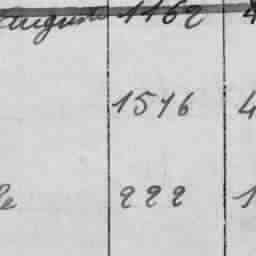 Auguste 1162 4
1546 4
le 222 1